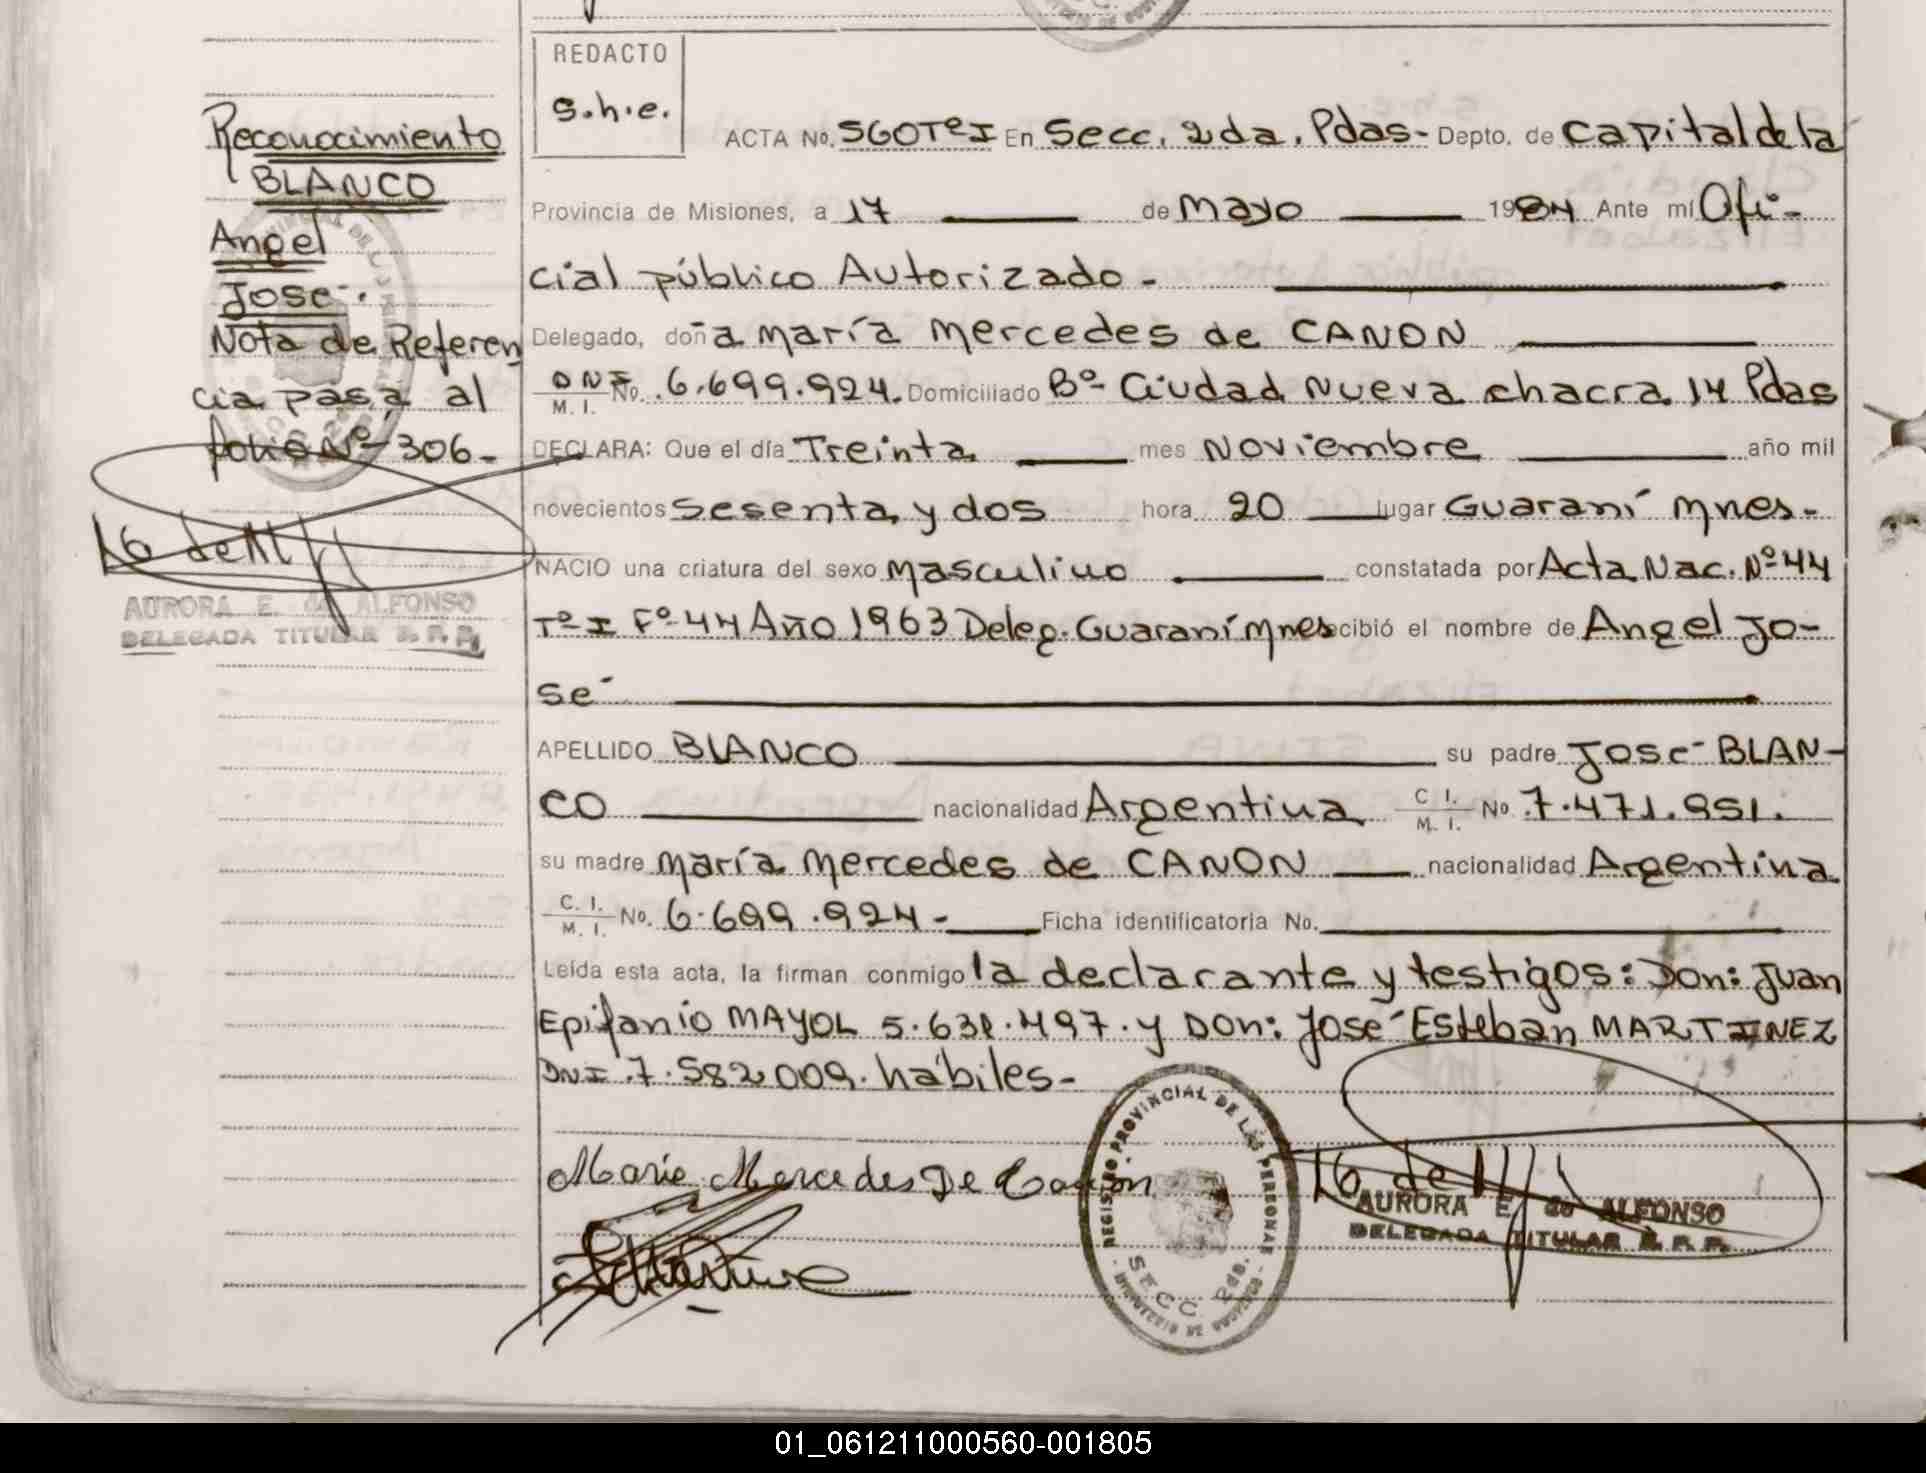 REDACTO
s.h.e.
ACTA No. 560 Tº I En Secc. 2da. Pdas- Depto. de Capital de la
Provincia de Misiones, a 17 de Mayo 1984 Ante mí Ofi-
cial público Autorizado -
Delegado, doña María Mercedes de CANON
DNI M. I. No. 6.699.924. Domiciliado Bº Ciudad Nueva chacra 14 Pdas
DECLARA: Que el día Treinta mes Noviembre año mil
novecientos sesenta y dos hora 20 lugar Guaraní Mnes-
NACIO una criatura del sexo Masculino constatada por Acta Nac. Nº 44
Tº I Fº 44 Año 1963 Deleg. Guaraní Mnes cibió el nombre de Angel Jo-
sé
APELLIDO BLANCO su padre José BLAN-
CO nacionalidad Argentina C. I. M. I. No. 7.471.951.
su madre María Mercedes de CANON nacionalidad Argentina
C. I. M. I. No. 6.699.924- Ficha identificatoria No.
Leída esta acta, la firman conmigo la declarante y testigos: Don: Juan
Epifanio MAYOL 5.631.497. y Don: José Esteban MARTINEZ
DNI. 7.582009. hábiles-
Marie Mercedes De Canon
REGISTRO PROVINCIAL DE LAS PERSONAS
SECC. 2da.
AURORA E. de ALFONSO
DELEGADA TITULAR R. P. P.
Reconocimiento
BLANCO
Angel
José.
Nota de Referen
cia pasa al
folio Nº 306-
AURORA E. de ALFONSO
DELEGADA TITULAR R. P. P.
01_061211000560-001805